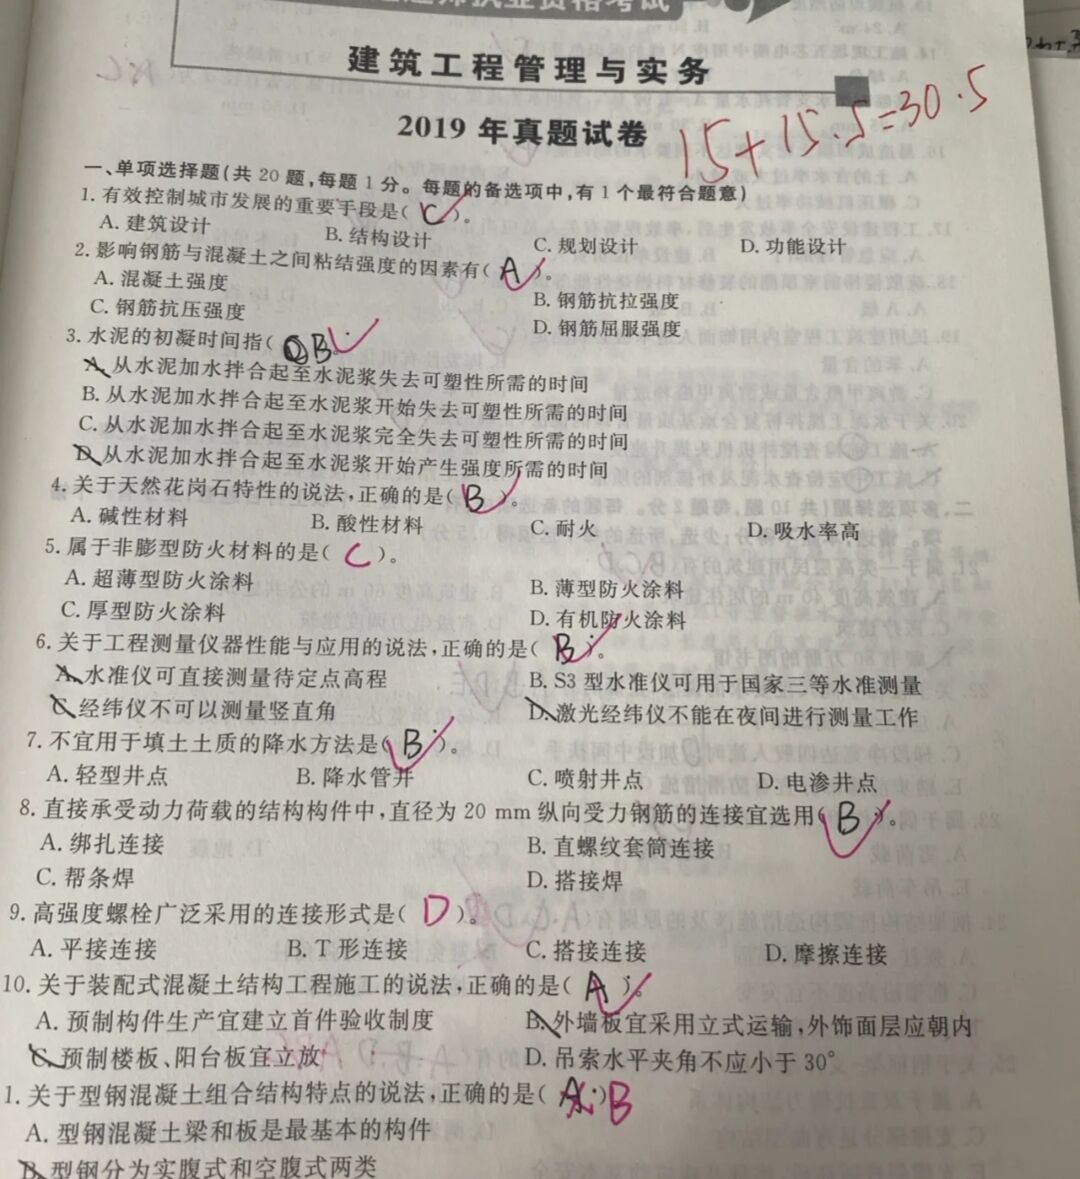 执业资格考试
建筑工程管理与实务
2019 年真题试卷
15+15.5=30.5
一、单项选择题(共 20 题,每题 1 分。每题的备选项中,有 1 个最符合题意)
1. 有效控制城市发展的重要手段是( C )。
A. 建筑设计 B. 结构设计 C. 规划设计 D. 功能设计
2. 影响钢筋与混凝土之间粘结强度的因素有( A )。
A. 混凝土强度 B. 钢筋抗拉强度
C. 钢筋抗压强度 D. 钢筋屈服强度
3. 水泥的初凝时间指( B
A. 从水泥加水拌合起至水泥浆失去可塑性所需的时间
B. 从水泥加水拌合起至水泥浆开始失去可塑性所需的时间
C. 从水泥加水拌合起至水泥浆完全失去可塑性所需的时间
D. 从水泥加水拌合起至水泥浆开始产生强度所需的时间
4. 关于天然花岗石特性的说法,正确的是( B )。
A. 碱性材料 B. 酸性材料 C. 耐火 D. 吸水率高
5. 属于非膨型防火材料的是( C )。
A. 超薄型防火涂料 B. 薄型防火涂料
C. 厚型防火涂料 D. 有机防火涂料
6. 关于工程测量仪器性能与应用的说法,正确的是( B )。
A. 水准仪可直接测量待定点高程 B. S3 型水准仪可用于国家三等水准测量
C. 经纬仪不可以测量竖直角 D. 激光经纬仪不能在夜间进行测量工作
7. 不宜用于填土土质的降水方法是( B )。
A. 轻型井点 B. 降水管井 C. 喷射井点 D. 电渗井点
8. 直接承受动力荷载的结构构件中,直径为 20 mm 纵向受力钢筋的连接宜选用( B )。
A. 绑扎连接 B. 直螺纹套筒连接
C. 帮条焊 D. 搭接焊
9. 高强度螺栓广泛采用的连接形式是( D )。
A. 平接连接 B. T 形连接 C. 搭接连接 D. 摩擦连接
10. 关于装配式混凝土结构工程施工的说法,正确的是( A )。
A. 预制构件生产宜建立首件验收制度 B. 外墙板宜采用立式运输,外饰面层应朝内
C. 预制楼板、阳台板宜立放 D. 吊索水平夹角不应小于 30°
1. 关于型钢混凝土组合结构特点的说法,正确的是( A ) B
A. 型钢混凝土梁和板是最基本的构件
B. 型钢分为实腹式和空腹式两类